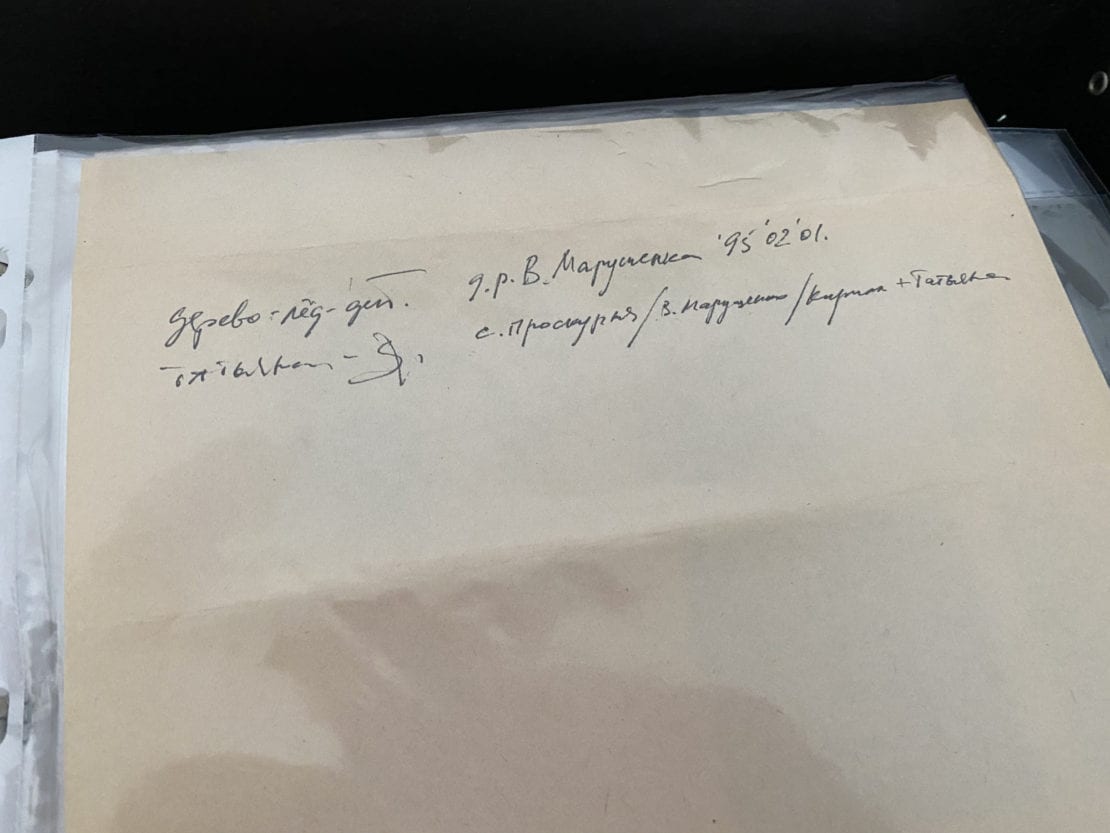 дерево-лёд-
татьяна -
д.р. В. Марущенка '95'02'01.
с. Проскурня / В. Марущенко / Кирилл + Татьяна